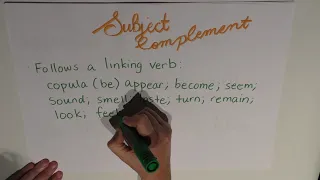 Subject
Complement
Follows a linking verb:
copula (be) appear; become; seem;
sound; smell; taste; turn; remain;
look; feel